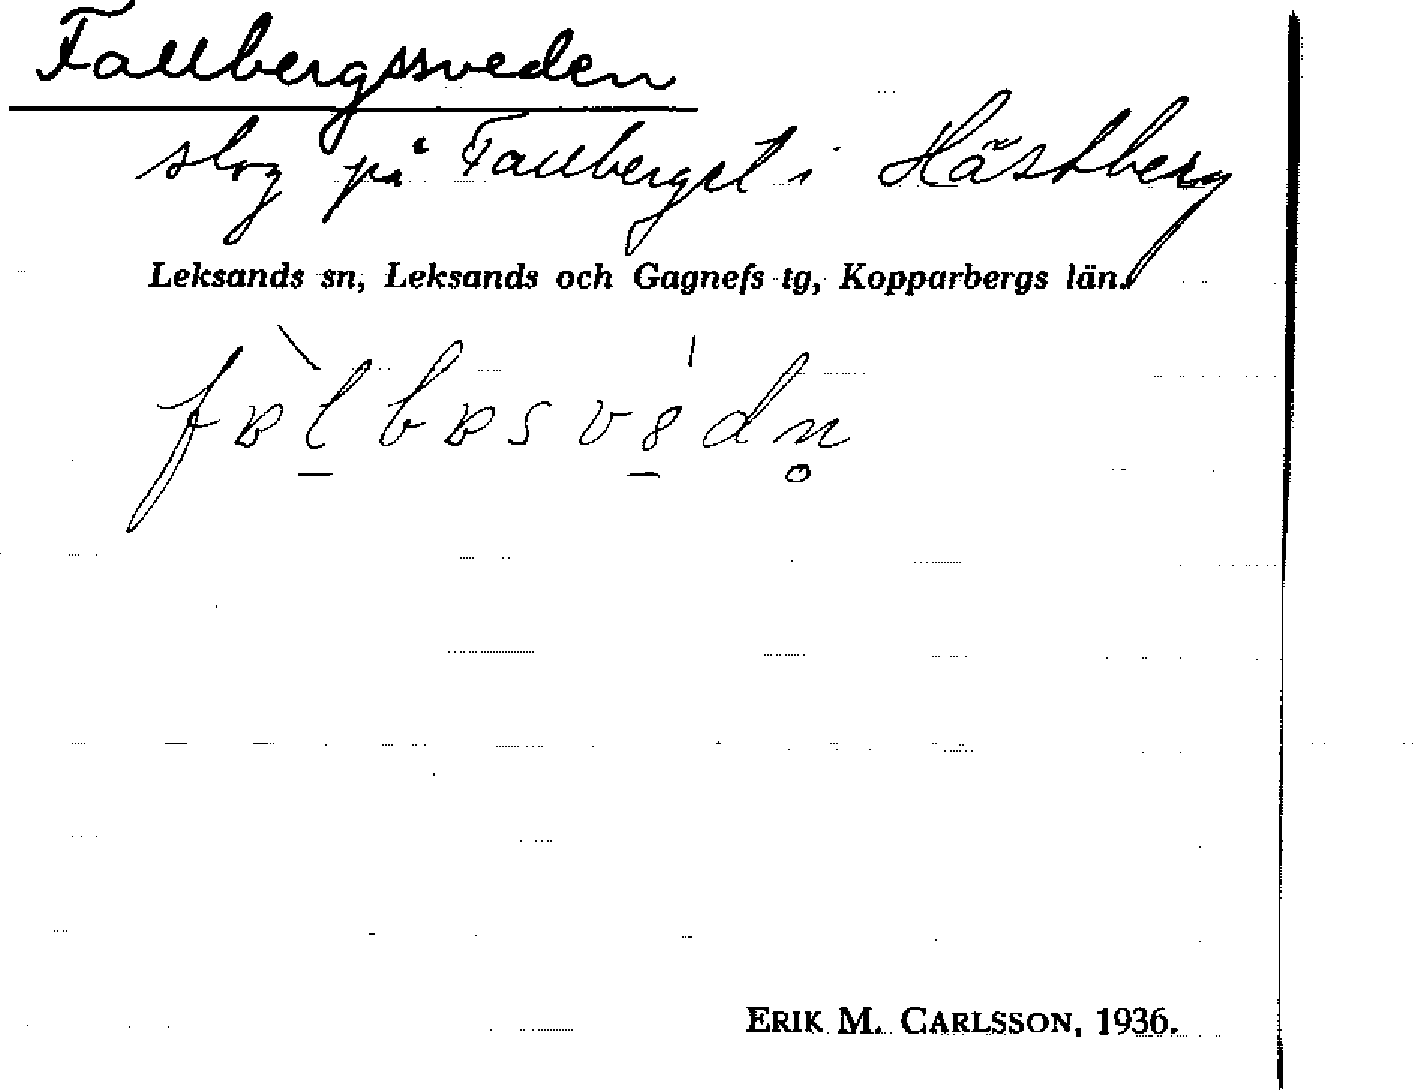 Fallbergssveden
slog på Fallberget i Hästberg
Leksands sn, Leksands och Gagnefs tg, Kopparbergs län.
ERIK M. CARLSSON, 1936.